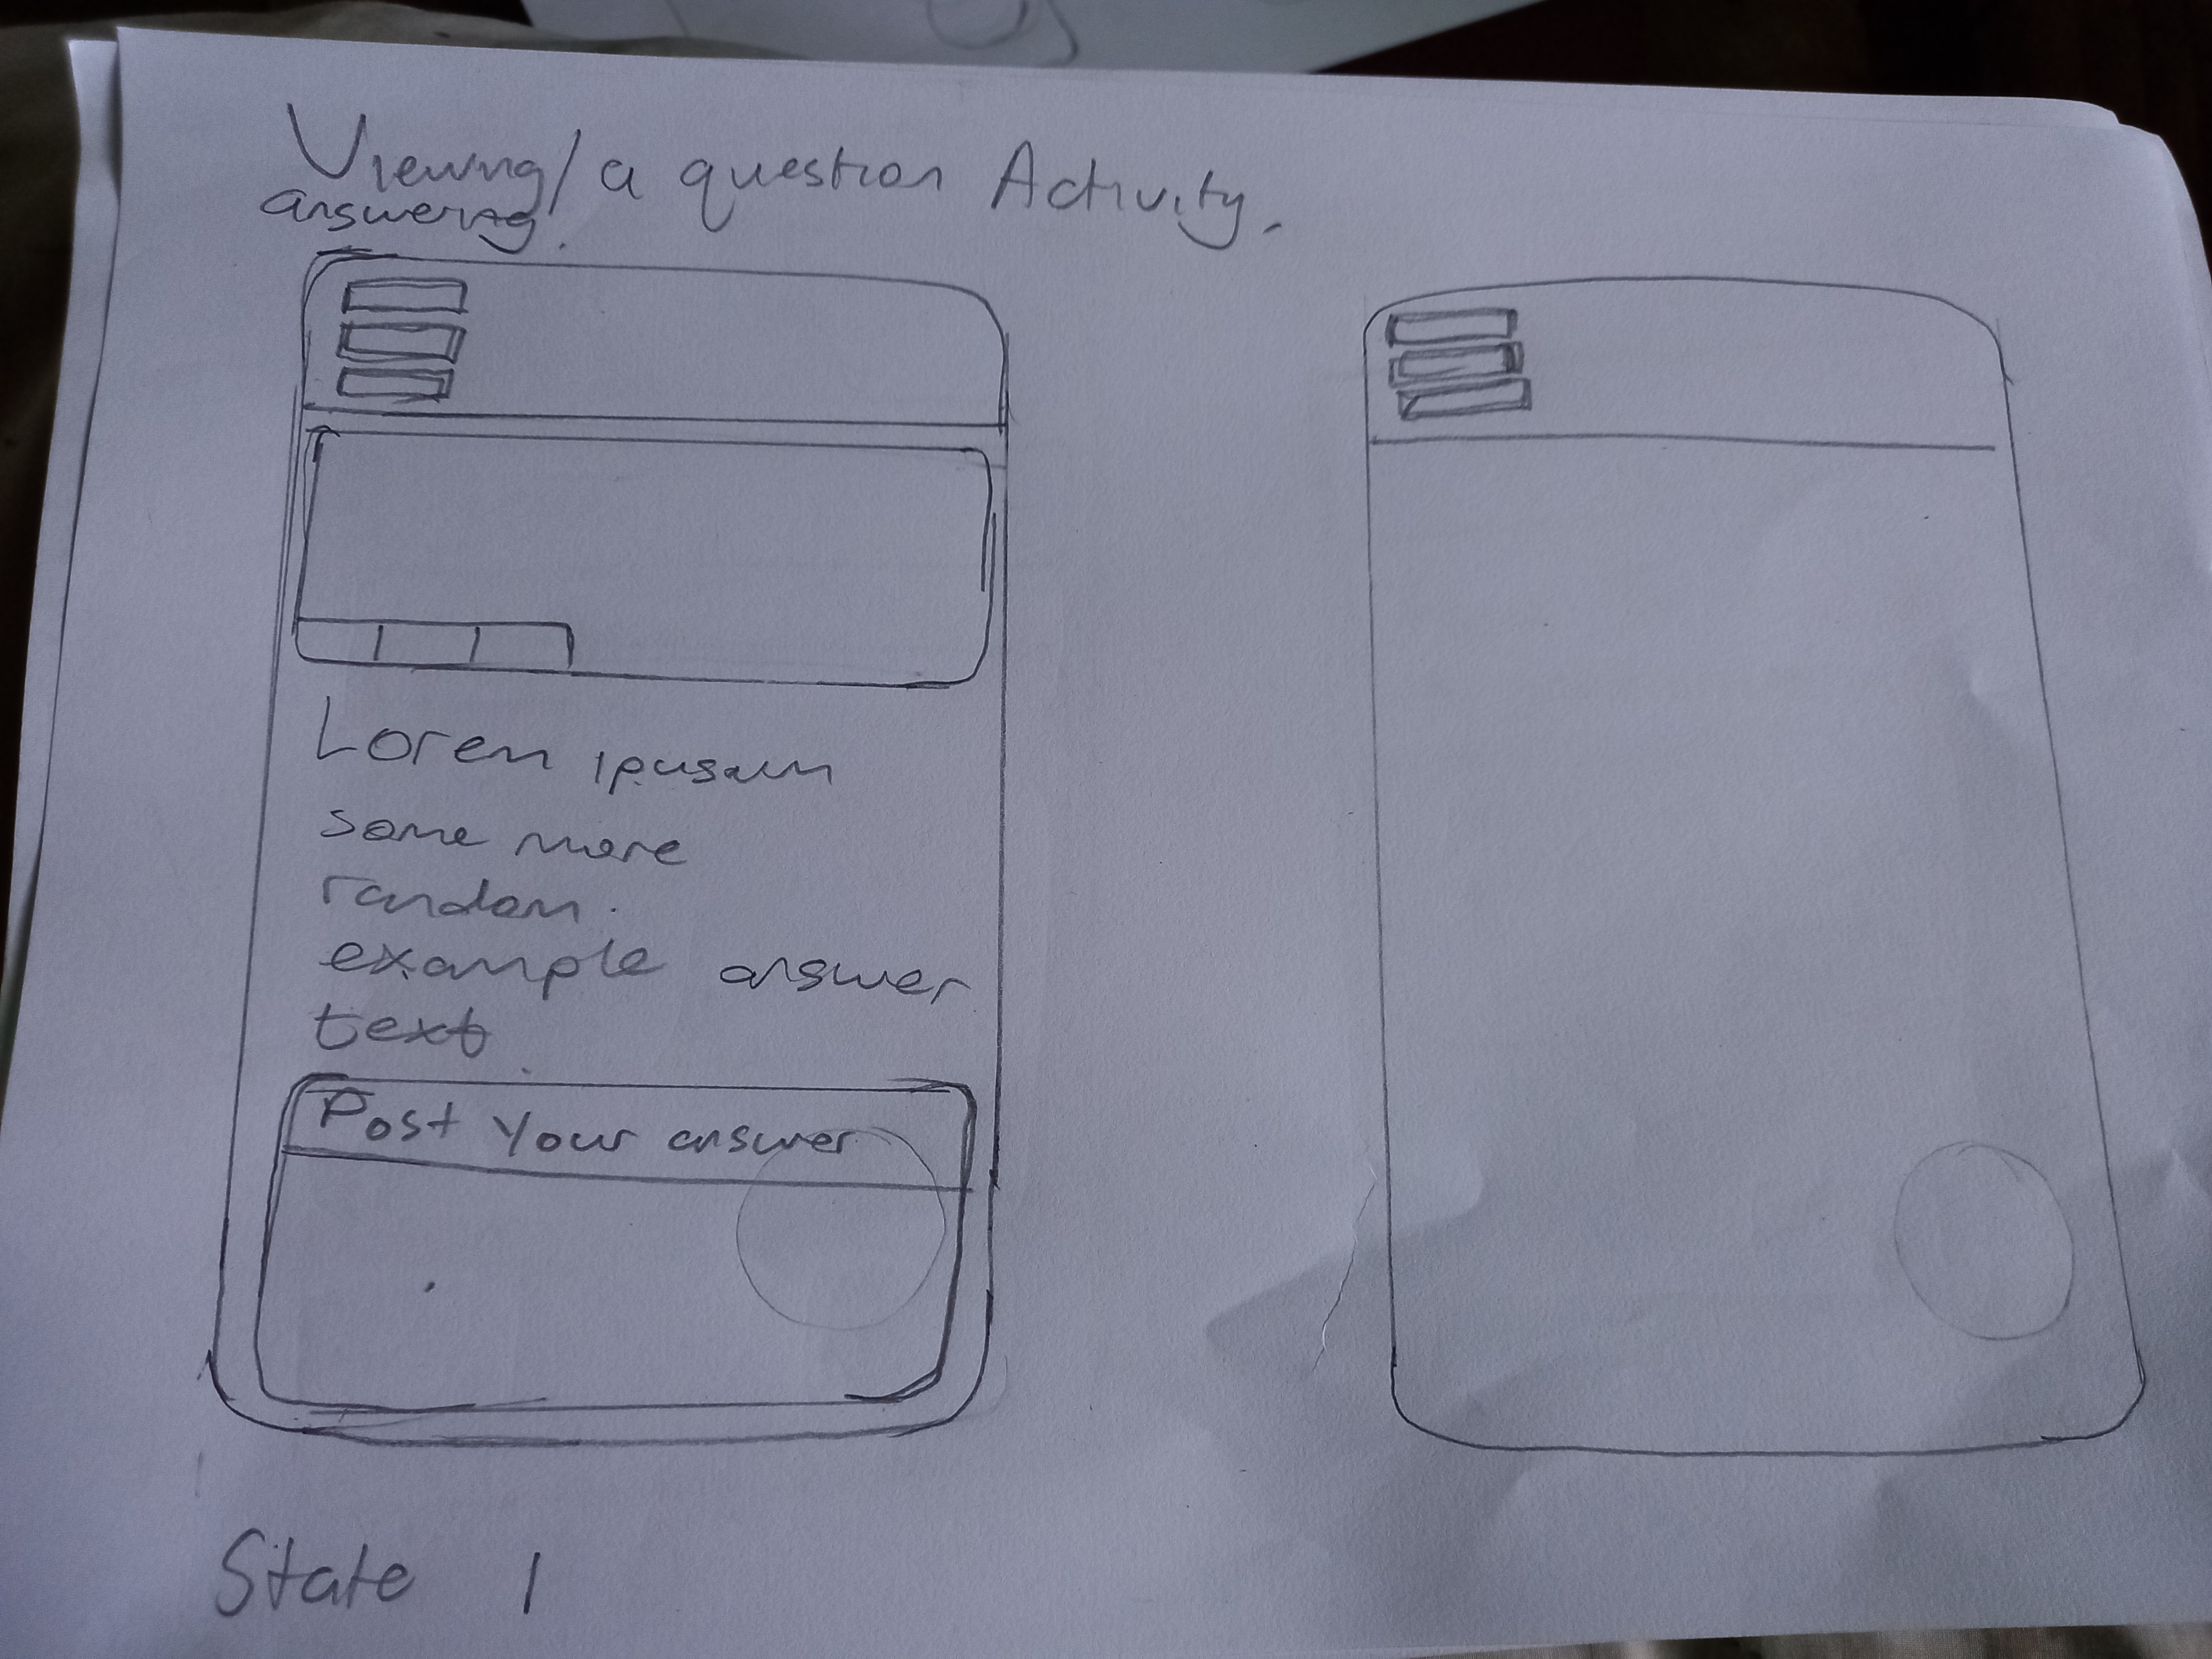 Viewing/ a question Activity.
answering.
Lorem ipusum
some more
random.
example answer
text
Post Your answer
State 1